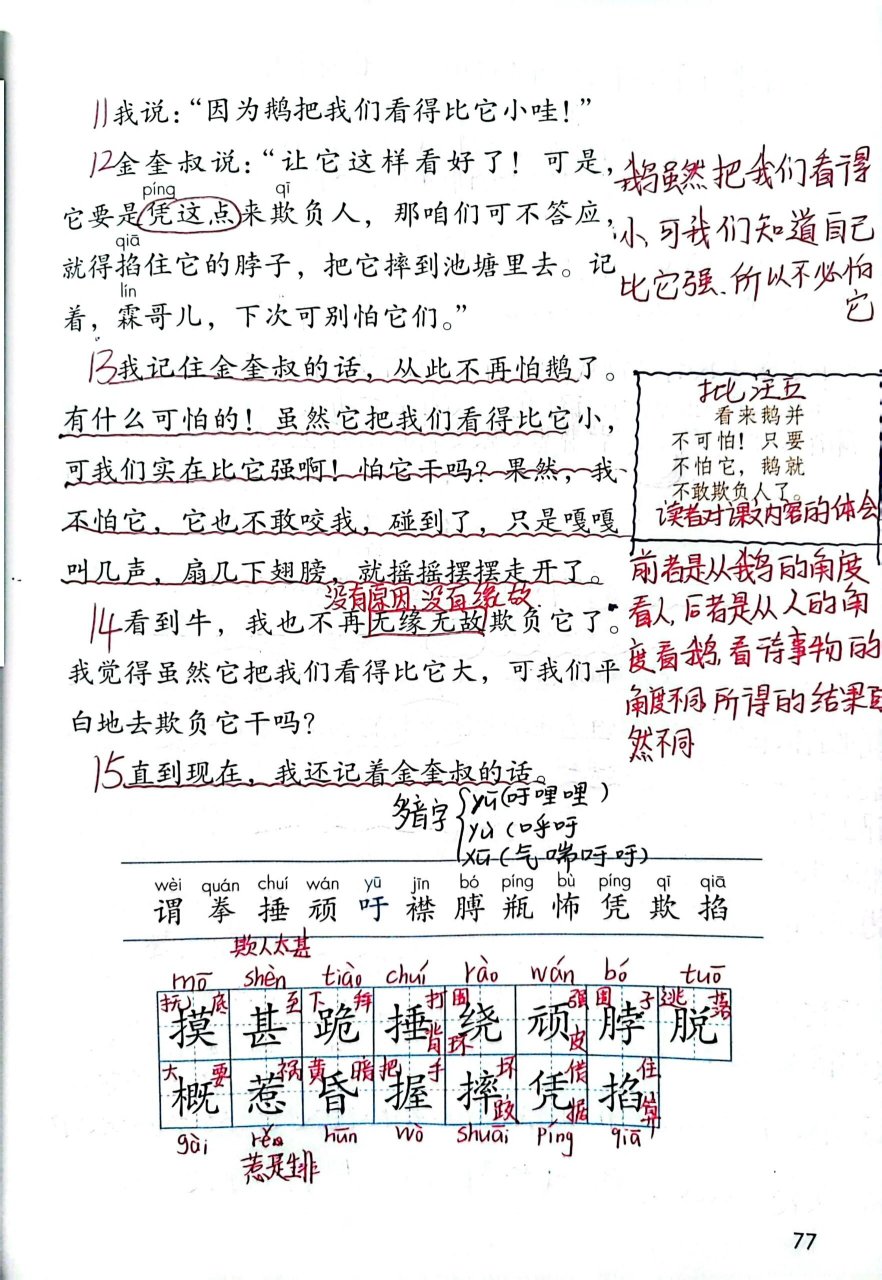 11我说：“因为鹅把我们看得比它小哇！”
12金奎叔说：“让它这样看好了！可是，
píng qī
它要是凭这点来欺负人，那咱们可不答应，
qiā
就得掐住它的脖子，把它摔到池塘里去。记
lín
着，霖哥儿，下次可别怕它们。”
鹅虽然把我们看得
小，可我们知道自己
比它强、所以不必怕
它
13我记住金奎叔的话，从此不再怕鹅了。
有什么可怕的！虽然它把我们看得比它小，
可我们实在比它强啊！怕它干吗？果然，我
不怕它，它也不敢咬我，碰到了，只是嘎嘎
叫几声，扇几下翅膀，就摇摇摆摆走开了。
批注五
看来鹅并
不可怕！只要
不怕它，鹅就
不敢欺负人了。
读者对课文内容的体会
没有原因，没有缘故
14看到牛，我也不再无缘无故欺负它了。
我觉得虽然它把我们看得比它大，可我们平
白地去欺负它干吗？
前者是从鹅的角度
看人，后者是从人的角
度看鹅，看待事物的
角度不同，所得的结果
然不同
15直到现在，我还记着金奎叔的话。
多音字
yū（吁哩哩）
yù（呼吁
xū（气喘吁吁）
wèi quán chuí wán yū jīn bó píng bù píng qī qiā
谓 拳 捶 顽 吁 襟 膊 瓶 怖 凭 欺 掐
欺人太甚
mō shèn tiào chuí rào wán bó tuō
抚 底 至 下 拜 打 围 强 围 子 逃 落
摸 甚 跪 捶 绕 顽 脖 脱
背 环 皮
大 要 祸 黄 暗 把 手 坏 借 住
概 惹 昏 握 摔 凭 掐
跤 据 算
gài rě hūn wò shuāi píng qiā
惹是生非
77